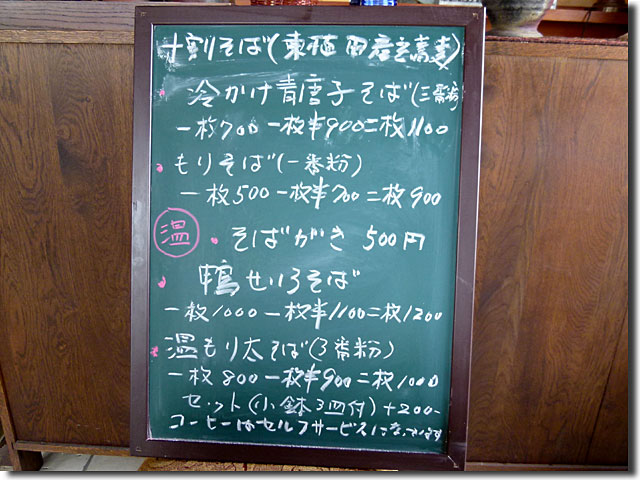 十割そば(東植田産玄蕎麦)
・冷かけ青唐子そば(三番粉)
一枚700 一枚半900 二枚1100
・もりそば(一番粉)
一枚500 一枚半700 二枚900
温 ・そばがき 500円
・鴨せいろそば
一枚1000 一枚半1100 二枚1200
・温もり太そば(3番粉)
一枚800 一枚半900 二枚1000
セット(小鉢3皿付)+200-
コーヒーはセルフサービスになってます